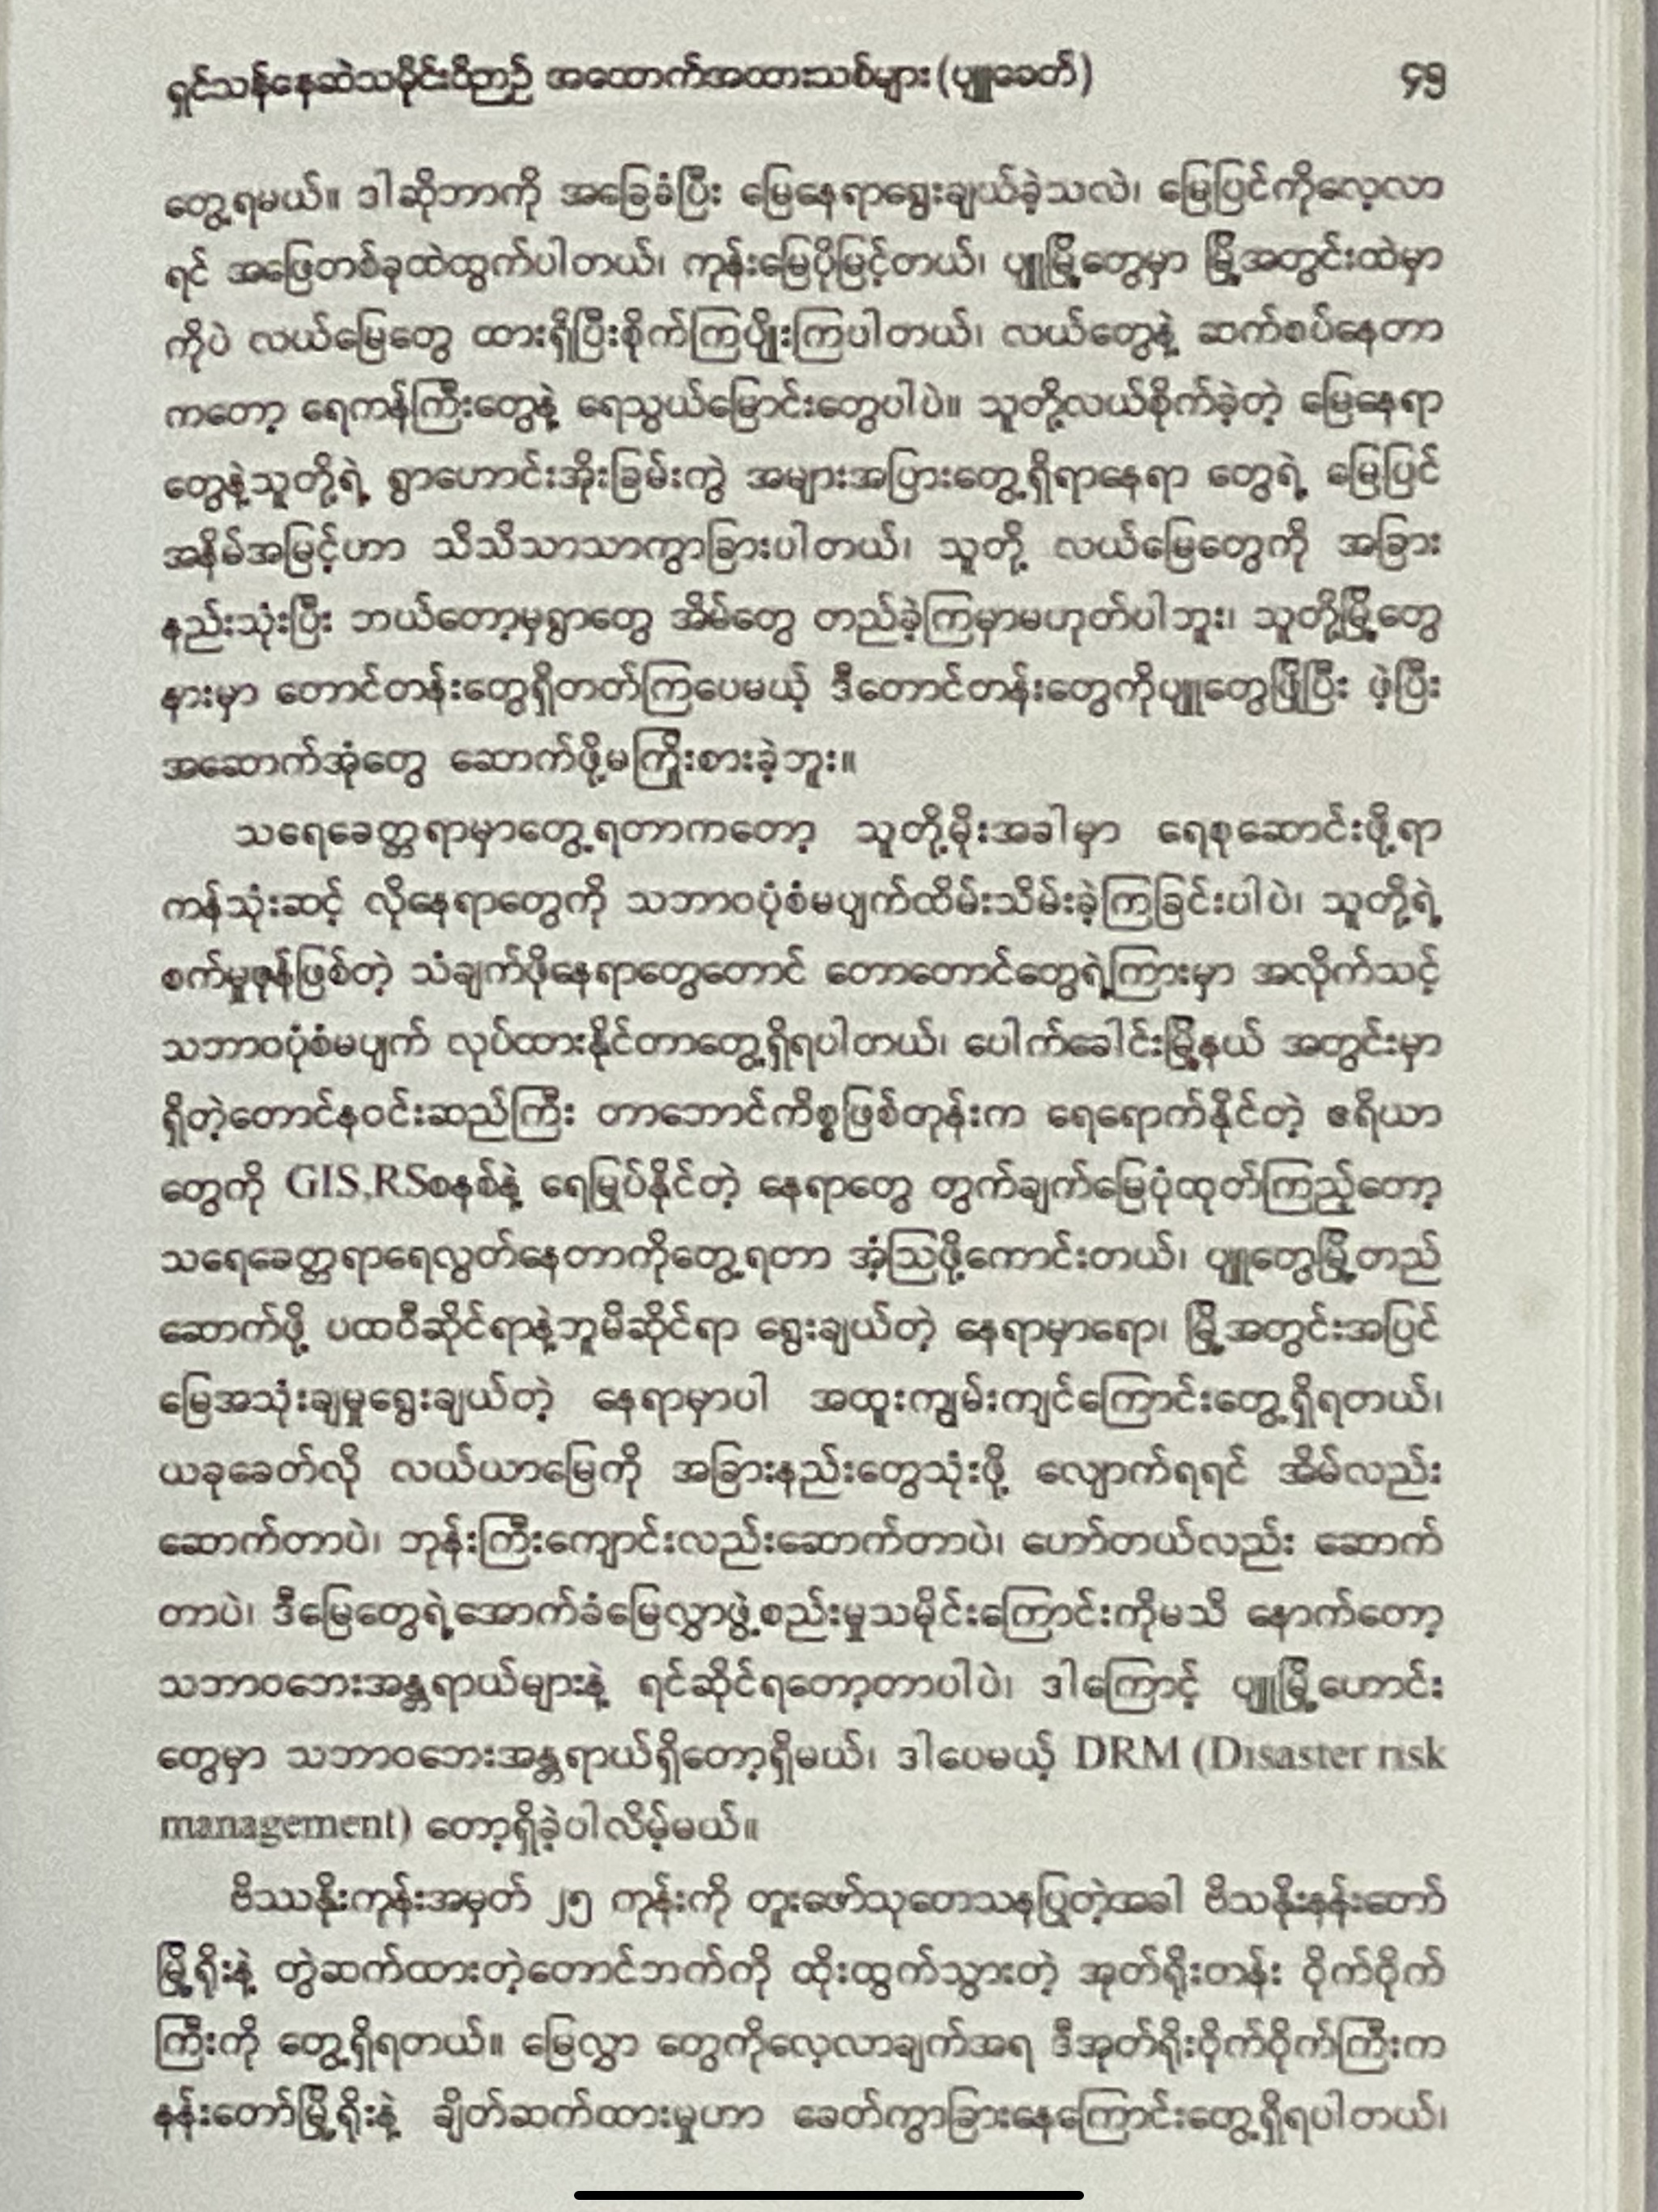 ရှင်သန်နေဆဲသမိုင်းဝိညာဉ် အထောက်အထားသစ်များ (ပျူခေတ်) ၄၅
တွေ့ရမယ်။ ဒါဆိုဘာကို အခြေခံပြီး မြေနေရာရွေးချယ်ခဲ့သလဲ၊ မြေပြင်ကိုလေ့လာ
ရင် အဖြေတစ်ခုထဲထွက်ပါတယ်၊ ကုန်းမြေပိုမြင့်တယ်၊ ပျူမြို့တွေမှာ မြို့အတွင်းထဲမှာ
ကိုပဲ လယ်မြေတွေ ထားရှိပြီးစိုက်ကြပျိုးကြပါတယ်၊ လယ်တွေနဲ့ ဆက်စပ်နေတာ
ကတော့ ရေကန်ကြီးတွေနဲ့ ရေသွယ်မြောင်းတွေပါပဲ။ သူတို့လယ်စိုက်ခဲ့တဲ့ မြေနေရာ
တွေနဲ့သူတို့ရဲ့ ရွာဟောင်းအိုးခြမ်းကွဲ အများအပြားတွေ့ရှိရာနေရာ တွေရဲ့ မြေပြင်
အနိမ်အမြင့်ဟာ သိသိသာသာကွာခြားပါတယ်၊ သူတို့ လယ်မြေတွေကို အခြား
နည်းသုံးပြီး ဘယ်တော့မှရွာတွေ အိမ်တွေ တည်ခဲ့ကြမှာမဟုတ်ပါဘူး၊ သူတို့မြို့တွေ
နားမှာ တောင်တန်းတွေရှိတတ်ကြပေမယ့် ဒီတောင်တန်းတွေကိုပျူတွေဖြိုပြီး ဖဲ့ပြီး
အဆောက်အုံတွေ ဆောက်ဖို့မကြိုးစားခဲ့ဘူး။
သရေခေတ္တရာမှာတွေ့ရတာကတော့ သူတို့မိုးအခါမှာ ရေစုဆောင်းဖို့ရာ
ကန်သုံးဆင့် လိုနေရာတွေကို သဘာဝပုံစံမပျက်ထိမ်းသိမ်းခဲ့ကြခြင်းပါပဲ၊ သူတို့ရဲ့
စက်မှုဇုန်ဖြစ်တဲ့ သံချက်ဖိုနေရာတွေတောင် တောတောင်တွေရဲ့ကြားမှာ အလိုက်သင့်
သဘာဝပုံစံမပျက် လုပ်ထားနိုင်တာတွေ့ရှိရပါတယ်၊ ပေါက်ခေါင်းမြို့နယ် အတွင်းမှာ
ရှိတဲ့တောင်နဝင်းဆည်ကြီး တာဘောင်ကိစ္စဖြစ်တုန်းက ရေရောက်နိုင်တဲ့ ဧရိယာ
တွေကို GIS,RSစနစ်နဲ့ ရေမြုပ်နိုင်တဲ့ နေရာတွေ တွက်ချက်မြေပုံထုတ်ကြည့်တော့
သရေခေတ္တရာရေလွတ်နေတာကိုတွေ့ရတာ အံ့ဩဖို့ကောင်းတယ်၊ ပျူတွေမြို့တည်
ဆောက်ဖို့ ပထဝီဆိုင်ရာနဲ့ဘူမိဆိုင်ရာ ရွေးချယ်တဲ့ နေရာမှာရော၊ မြို့အတွင်းအပြင်
မြေအသုံးချမှုရွေးချယ်တဲ့ နေရာမှာပါ အထူးကျွမ်းကျင်ကြောင်းတွေ့ရှိရတယ်၊
ယခုခေတ်လို လယ်ယာမြေကို အခြားနည်းတွေသုံးဖို့ လျောက်ရရင် အိမ်လည်း
ဆောက်တာပဲ၊ ဘုန်းကြီးကျောင်းလည်းဆောက်တာပဲ၊ ဟော်တယ်လည်း ဆောက်
တာပဲ၊ ဒီမြေတွေရဲ့အောက်ခံမြေလွှာဖွဲ့စည်းမှုသမိုင်းကြောင်းကိုမသိ နောက်တော့
သဘာဝဘေးအန္တရာယ်များနဲ့ ရင်ဆိုင်ရတော့တာပါပဲ၊ ဒါကြောင့် ပျူမြို့ဟောင်း
တွေမှာ သဘာဝဘေးအန္တရာယ်ရှိတော့ရှိမယ်၊ ဒါပေမယ့် DRM (Disaster risk
management) တော့ရှိခဲ့ပါလိမ့်မယ်။
ဗိဿနိုးကုန်းအမှတ် ၂၅ ကုန်းကို တူးဖော်သုတေသနပြုတဲ့အခါ ဗိသနိုးနန်းတော်
မြို့ရိုးနဲ့ တွဲဆက်ထားတဲ့တောင်ဘက်ကို ထိုးထွက်သွားတဲ့ အုတ်ရိုးတန်း ဝိုက်ဝိုက်
ကြီးကို တွေ့ရှိရတယ်။ မြေလွှာ တွေကိုလေ့လာချက်အရ ဒီအုတ်ရိုးဝိုက်ဝိုက်ကြီးက
နန်းတော်မြို့ရိုးနဲ့ ချိတ်ဆက်ထားမှုဟာ ခေတ်ကွာခြားနေကြောင်းတွေ့ရှိရပါတယ်၊